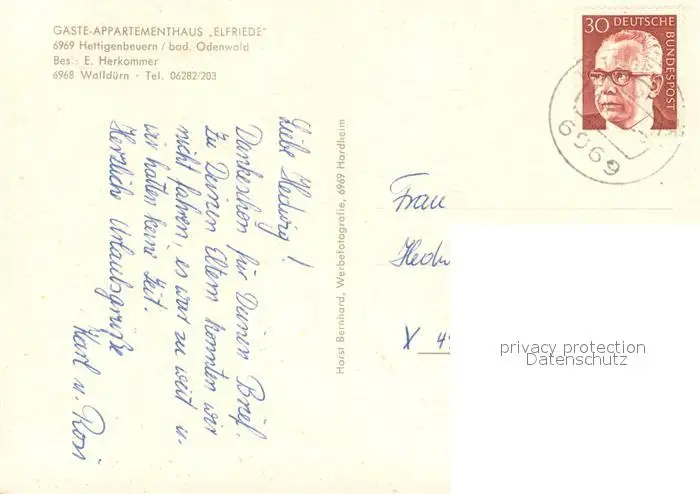 GÄSTE-APPARTEMENTHAUS „ELFRIEDE"
6969 Hettigenbeuern / bad. Odenwald
Bes.: E. Herkommer
6968 Walldürn · Tel. 06282/203
Liebe Hedwig!
Dankeschön für Deinen Brief.
Zu Deinen Eltern konnten wir
nicht fahren, es war zu weit u.
wir hatten keine Zeit.
Herzliche Urlaubsgrüße
Karl u. Rosi
Horst Bernhard, Werbefotografie, 6969 Hardheim
30 DEUTSCHE
BUNDESPOST
6969
Frau
Hedw
X 4
privacy protection
Datenschutz